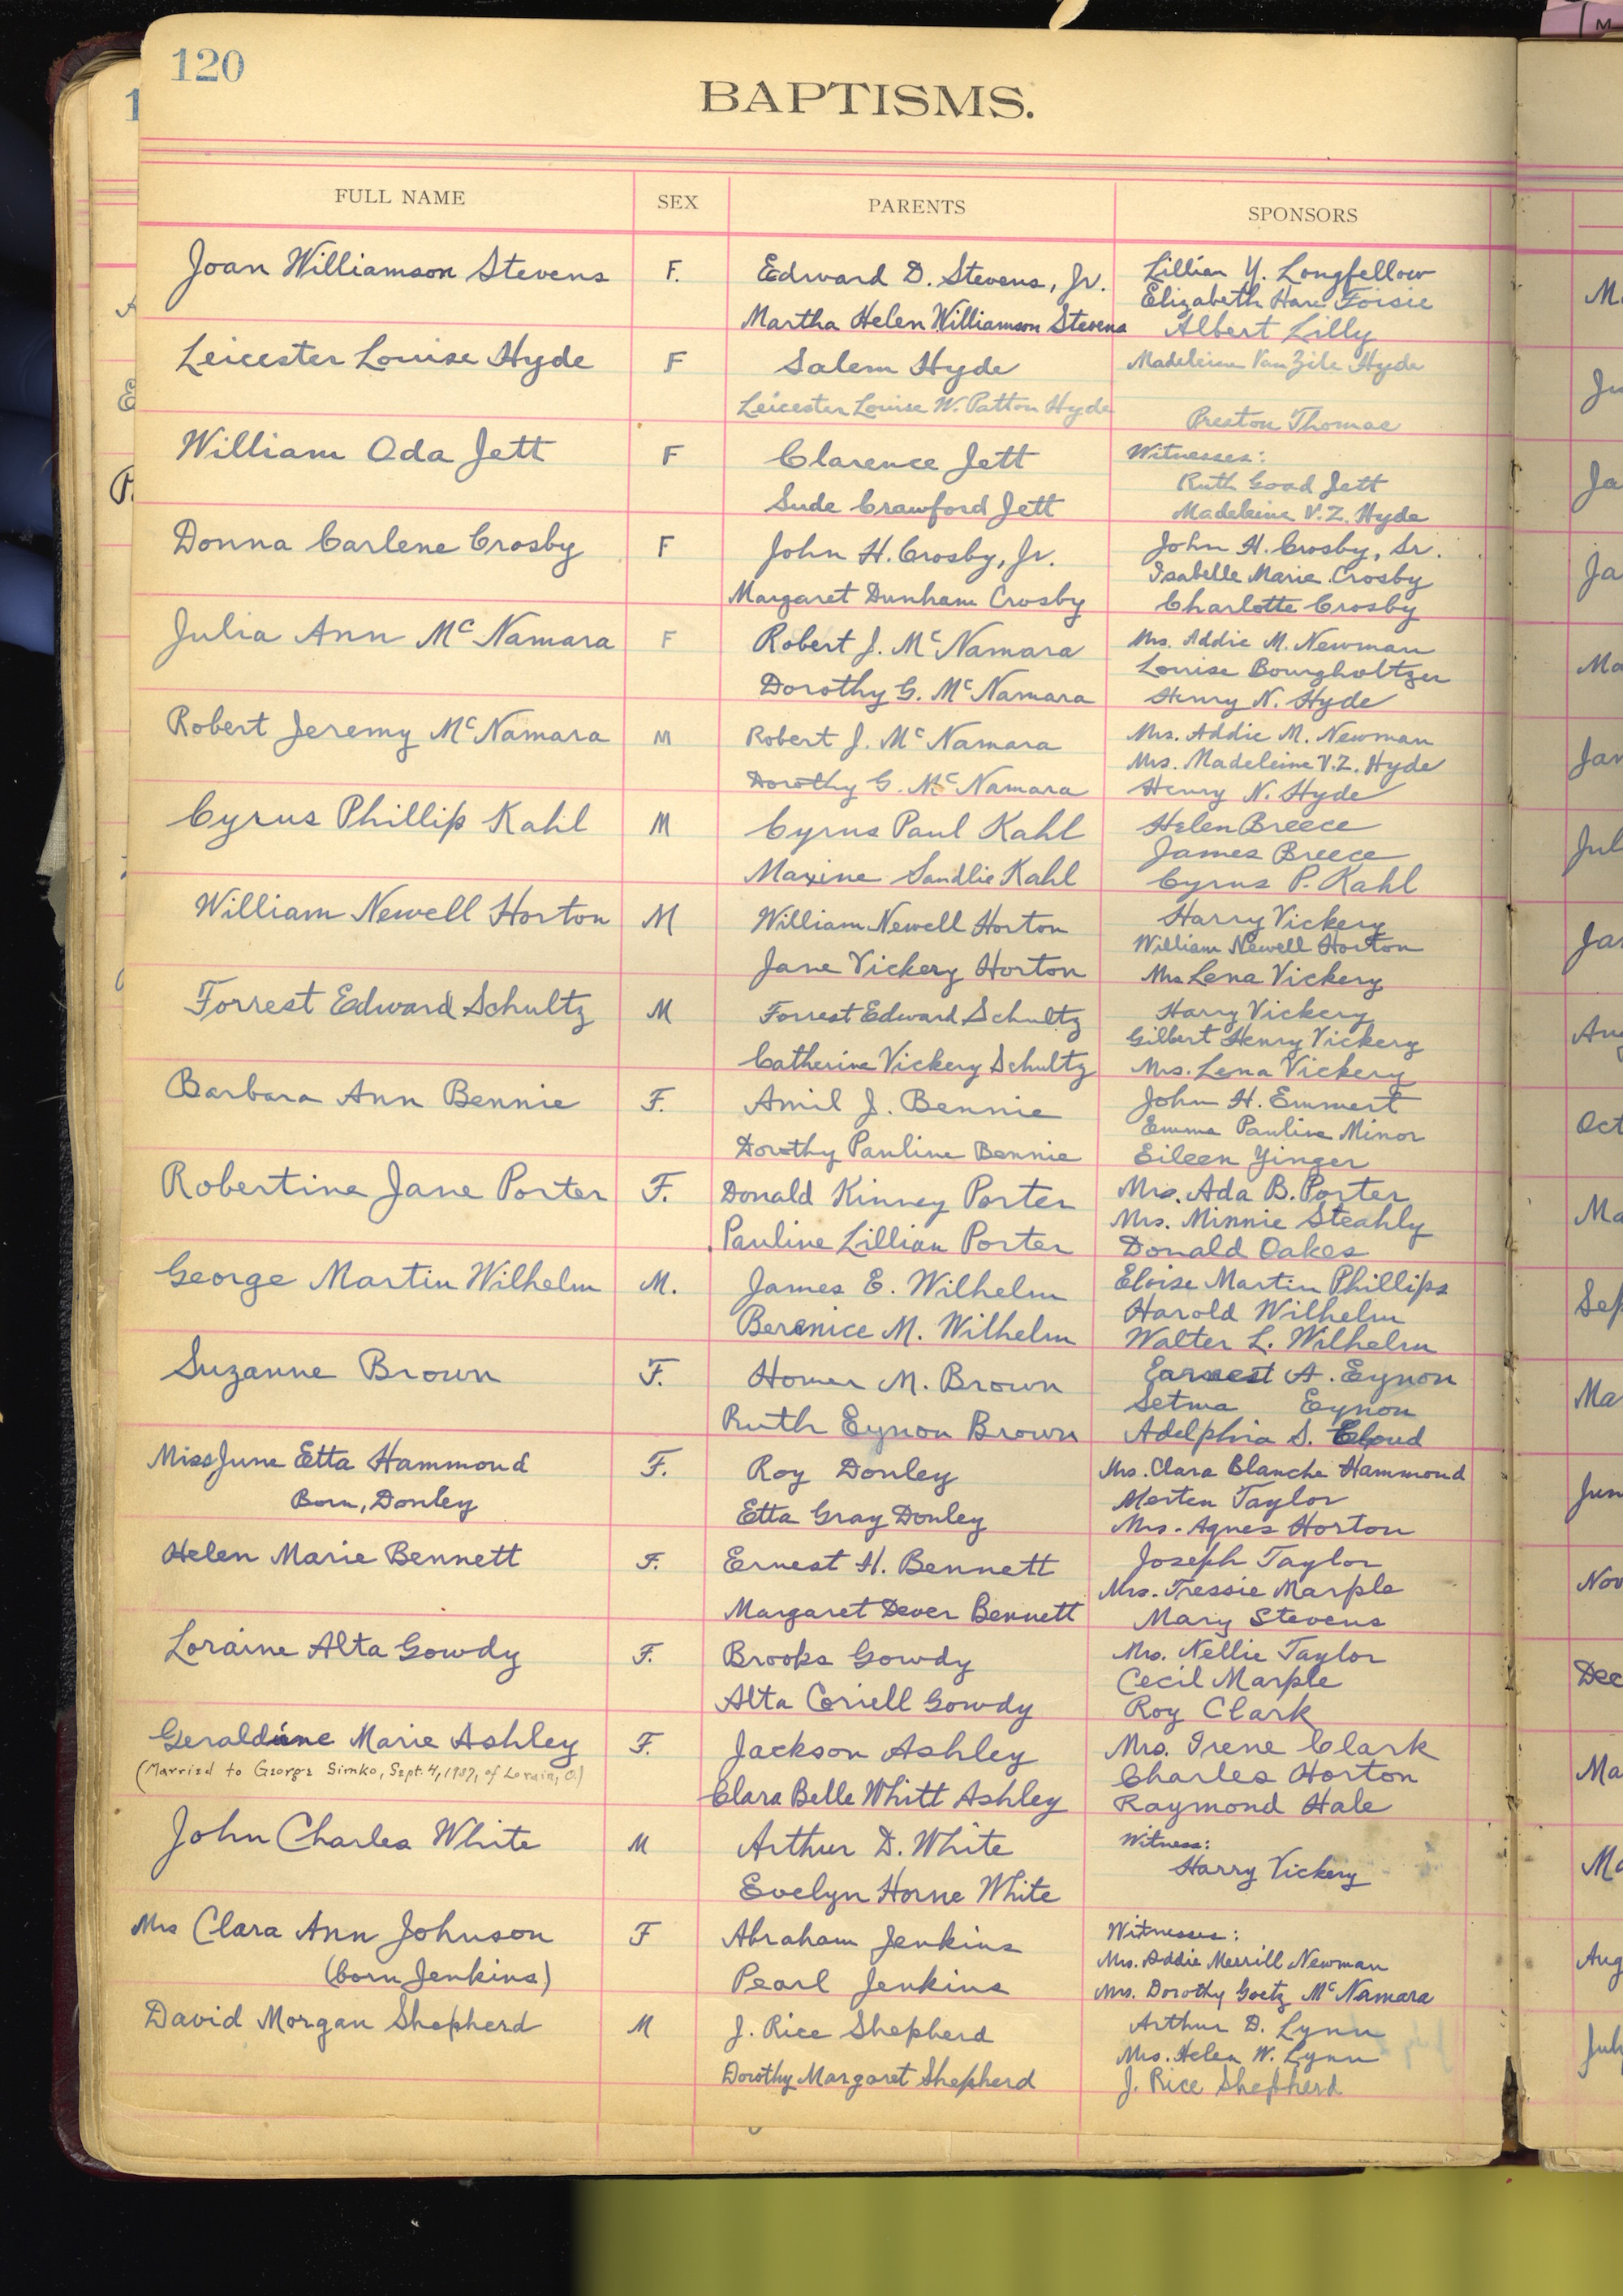 120
BAPTISMS.
FULL NAME SEX PARENTS SPONSORS
Joan Williamson Stevens F. Edward D. Stevens, Jr. Lillian Y. Longfellow
Elizabeth Hare Foisie
Martha Helen Williamson Stevens Albert Lilly
Leicester Louise Hyde F Salem Hyde Madeleine Van Zile Hyde
Leicester Louise W. Patton Hyde Preston Thomas
William Oda Jett F Clarence Jett Witnesses:
Ruth Good Jett
Sude Crawford Jett Madeleine V. Z. Hyde
Donna Carlene Crosby F John H. Crosby, Jr. John H. Crosby, Sr.
Isabelle Marie Crosby
Margaret Dunham Crosby Charlotte Crosby
Julia Ann McNamara F Robert J. McNamara Mrs. Addie M. Newman
Louise Bourgholtzer
Dorothy G. McNamara Henry N. Hyde
Robert Jeremy McNamara M Robert J. McNamara Mrs. Addie M. Newman
Mrs. Madeleine V.Z. Hyde
Dorothy G. McNamara Henry N. Hyde
Cyrus Phillip Kahl M Cyrus Paul Kahl Helen Breece
James Breece
Maxine Sandlie Kahl Cyrus P. Kahl
William Newell Horton M William Newell Horton Harry Vickery
William Newell Horton
Jane Vickery Horton Mrs Lena Vickery
Forrest Edward Schultz M Forrest Edward Schultz Harry Vickery
Gilbert Henry Vickery
Catherine Vickery Schultz Mrs. Lena Vickery
Barbara Ann Bennie F. Amil J. Bennie John H. Emmert
Emma Pauline Minor
Dorothy Pauline Bennie Eileen Yinger
Robertine Jane Porter F. Donald Kinney Porter Mrs. Ada B. Porter
Mrs. Minnie Steahly
Pauline Lillian Porter Donald Oakes
George Martin Wilhelm M. James E. Wilhelm Eloise Martin Phillips
Harold Wilhelm
Berenice M. Wilhelm Walter L. Wilhelm
Suzanne Brown F. Homer M. Brown Earnest A. Eynon
Setma Eynon
Ruth Eynon Brown Adelphia S. Cloud
Miss June Etta Hammond F. Roy Donley Mrs. Clara Blanche Hammond
Born, Donley Merten Taylor
Etta Gray Donley Mrs. Agnes Horton
Helen Marie Bennett F. Ernest H. Bennett Joseph Taylor
Mrs. Tressie Marple
Margaret Dever Bennett Mary Stevens
Loraine Alta Gowdy F. Brooks Gowdy Mrs. Nellie Taylor
Cecil Marple
Alta Coriell Gowdy Roy Clark
Geraldine Marie Ashley F. Jackson Ashley Mrs. Irene Clark
(Married to George Simko, Sept. 4, 1937, of Lorain, O.) Charles Horton
Clara Belle Whitt Ashley Raymond Hale
John Charles White M Arthur D. White Witness:
Harry Vickery
Evelyn Horne White
Mrs Clara Ann Johnson F Abraham Jenkins Witnesses:
Mrs. Addie Merrill Newman
(born Jenkins) Pearl Jenkins Mrs. Dorothy Goetz McNamara
David Morgan Shepherd M J. Rice Shepherd Arthur D. Lynn
Mrs. Helen W. Lynn
Dorothy Margaret Shepherd J. Rice Shepherd